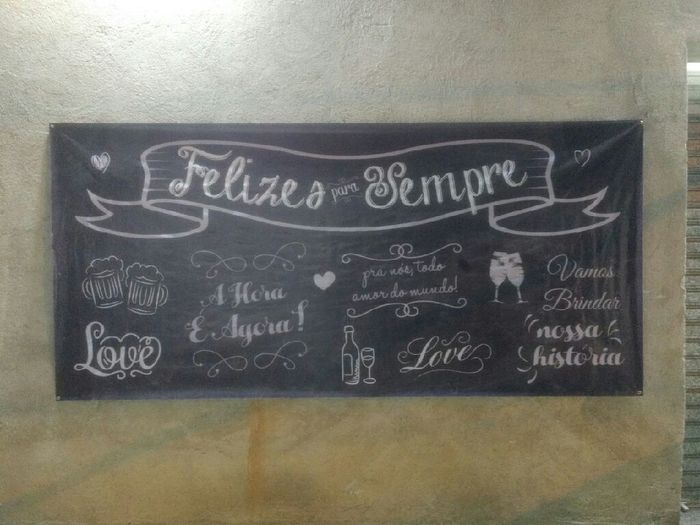 Felizes para Sempre
A Hora
É Agora!
pra nós, todo
amor do mundo!
Vamos
Brindar
nossa
história
Love
Love